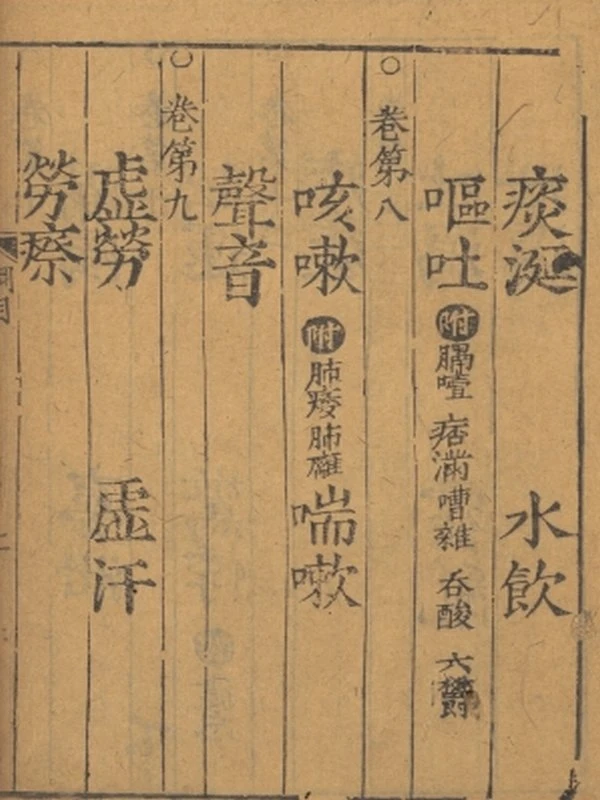 痰涎 水飲
嘔吐 附 膈噎 痞滿 嘈雜 吞酸 六欝
○ 卷第八
咳嗽 附 肺痿 肺癰 喘嗽
聲音
○ 卷第九
虛勞 虛汗
勞瘵